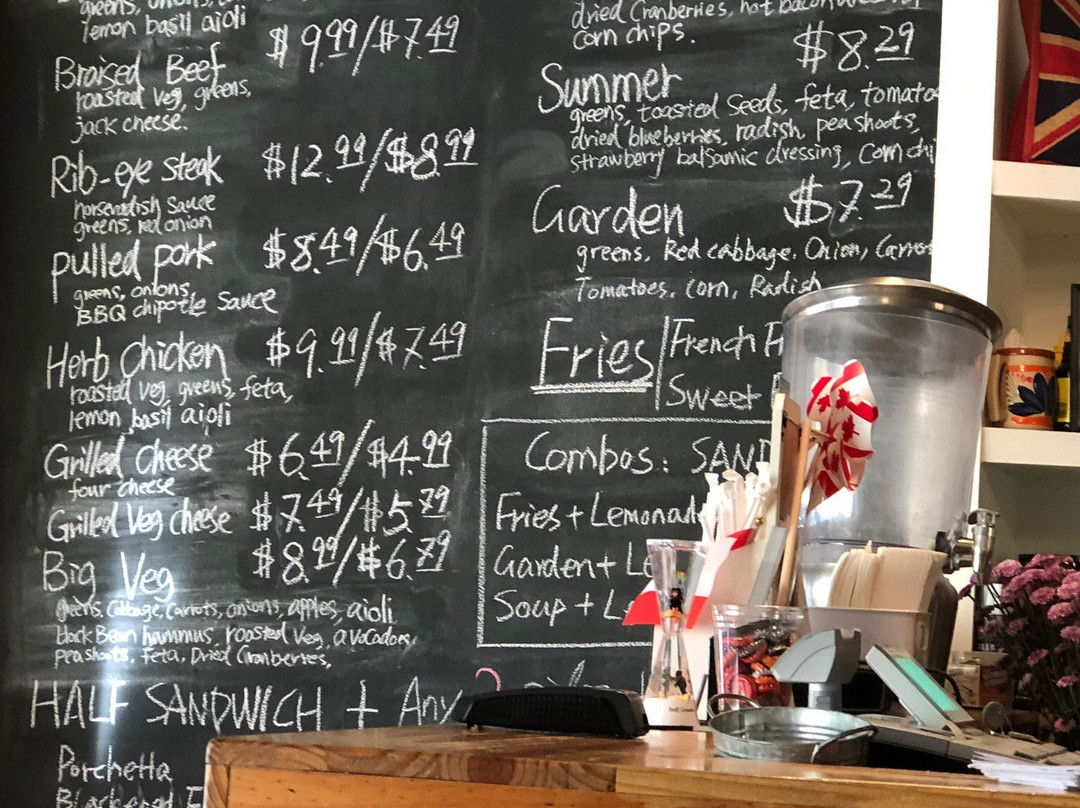 greens, onions,
lemon basil aioli
$9.99/$7.49
Braised Beef
roasted veg, greens,
jack cheese.
Rib-eye steak $12.99/$8.99
horseradish sauce
greens, red onion
pulled pork $8.49/$6.49
greens, onions,
BBQ chipotle sauce
Herb Chicken $9.99/$7.49
roasted veg, greens, feta,
lemon basil aioli
Grilled cheese $6.49/$4.99
four cheese
Grilled Veg cheese $7.49/$5.79
Big Veg $8.99/$6.79
greens, Cabbage, Carrots, onions, apples, aioli
black Bean hummus, roasted veg, avocados,
peashoots, feta, Dried Cranberries,
HALF SANDWICH + Any
Porchetta
dried Cranberries, hot bacon
corn chips.
$8.29
Summer
greens, toasted seeds, feta, tomato
dried blueberries, radish, pea shoots,
strawberry balsamic dressing, corn chi
Garden $7.29
greens, Red cabbage, Onion, Carro
Tomatoes, corn, Radish
Fries French F
Sweet
Combos: SAND
Fries + Lemonad
Garden + Le
Soup + L